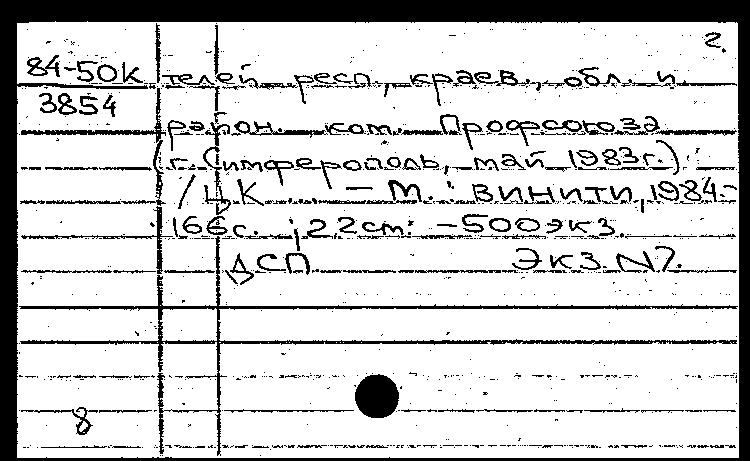 2.
84-50К телей респ., краев., обл. и
3854
район. ком. Профсоюза
(г. Симферополь, май 1983г.).
/ ЦК ... – М. : ВИНИТИ, 1984.-
166с. ; 22см. -500экз.
ДСП Экз. N7.
8